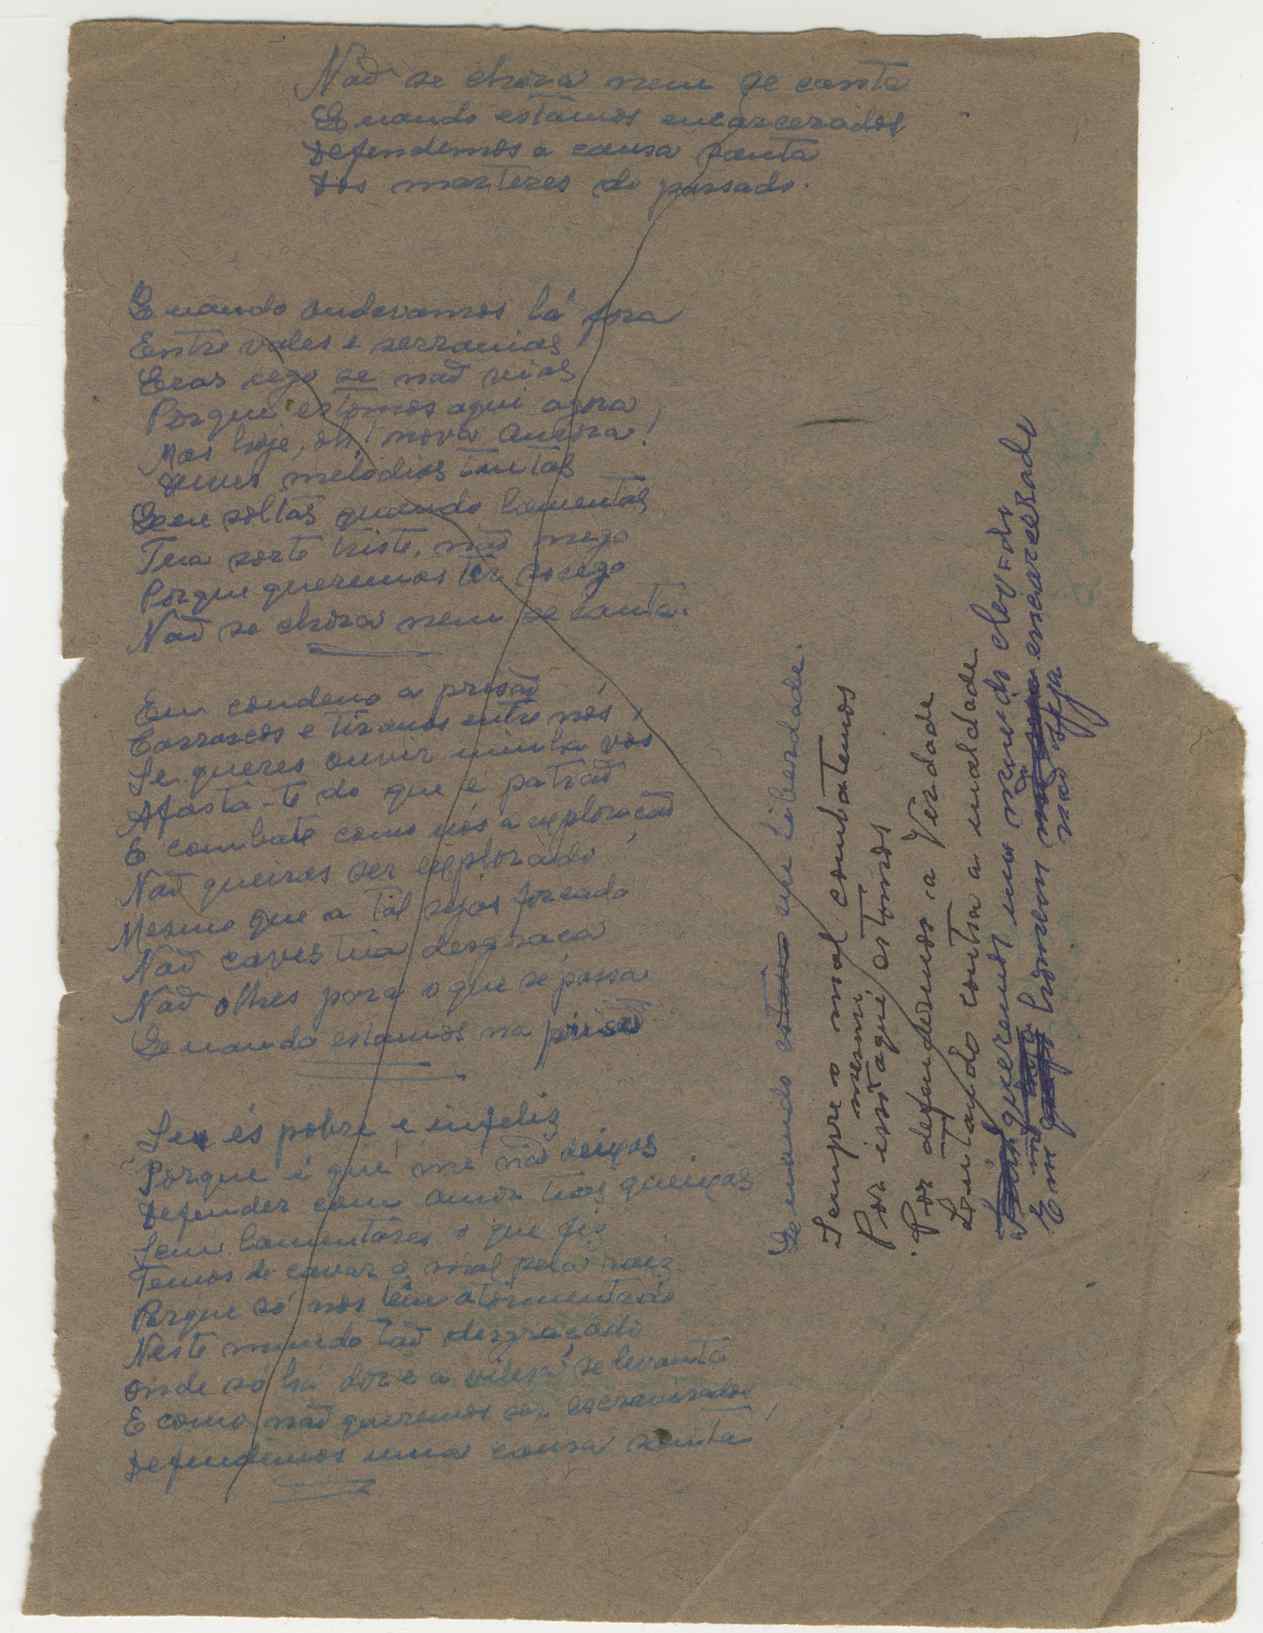 Não se chora nem se canta
Quando estamos encarcerados
Defendemos a causa santa
Dos marteres do passado.
Quando andavamos lá fora
Entre vales e serranias
Eras cego se não vias
Porque estamos aqui agora
Mas hoje, oh! nova aurora!
melodias tantas
soltas quando lamentas
Tua sorte triste, não nego
Porque queremos ter socego
Não se chora nem se canta.
Eu condeno a prisão
Carrascos e tiranos entre nós,
Se queres ouvir minha vós
Afasta-te do que é patrão
E combate como nós a exploração
Não queiras ser explorado
Mesmo que a tal sejas forçado
Não caves tua desgraça
Não olhes para o que se passa
Quando estamos na prisão
Se és pobre e infeliz
Porque é que me não deixas
Defender com amor tuas queixas
Sem lamentares o que fiz
Temos de cavar o mal pela raiz
Porque só nos tem atormentado
Neste mundo tão desgraçado
Onde só há dor e a se levanta
E como não queremos ser escravisados
Defendemos uma causa santa
Quando em liberdade.
Sempre o mal combatemos
Por isso mesmo, aqui estamos
Por defendermos a Verdade
Lutando contra a maldade
queremos um mundo
Em homem encarcerado
não seja